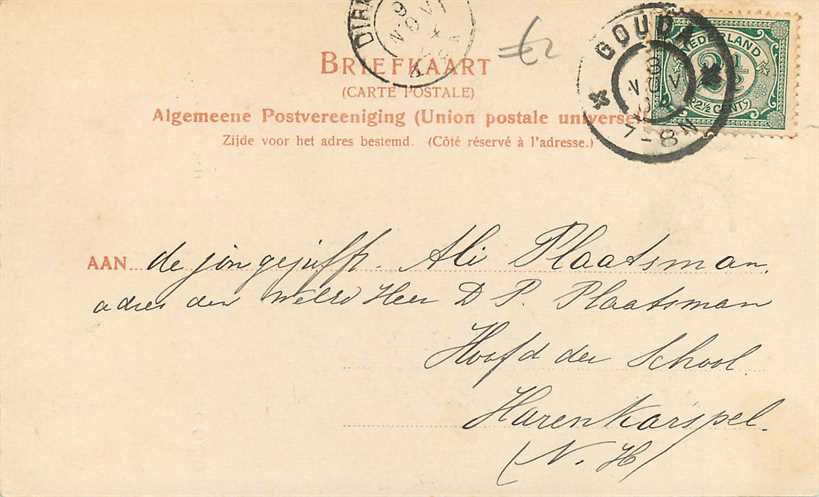 DIRK
NOV
£2
GOUDA
NOV
7-8N
NEDERLAND
2½
(2½ CENT)
BRIEFKAART
(CARTE POSTALE)
Algemeene Postvereeniging (Union postale universe
Zijde voor het adres bestemd. (Côté réservé à l'adresse.)
AAN de jongejuffr. Ali Plaatsman.
adres den WelEd Heer D P. Plaatsman
Hoofd der School
Harenkarspel.
(N. H)